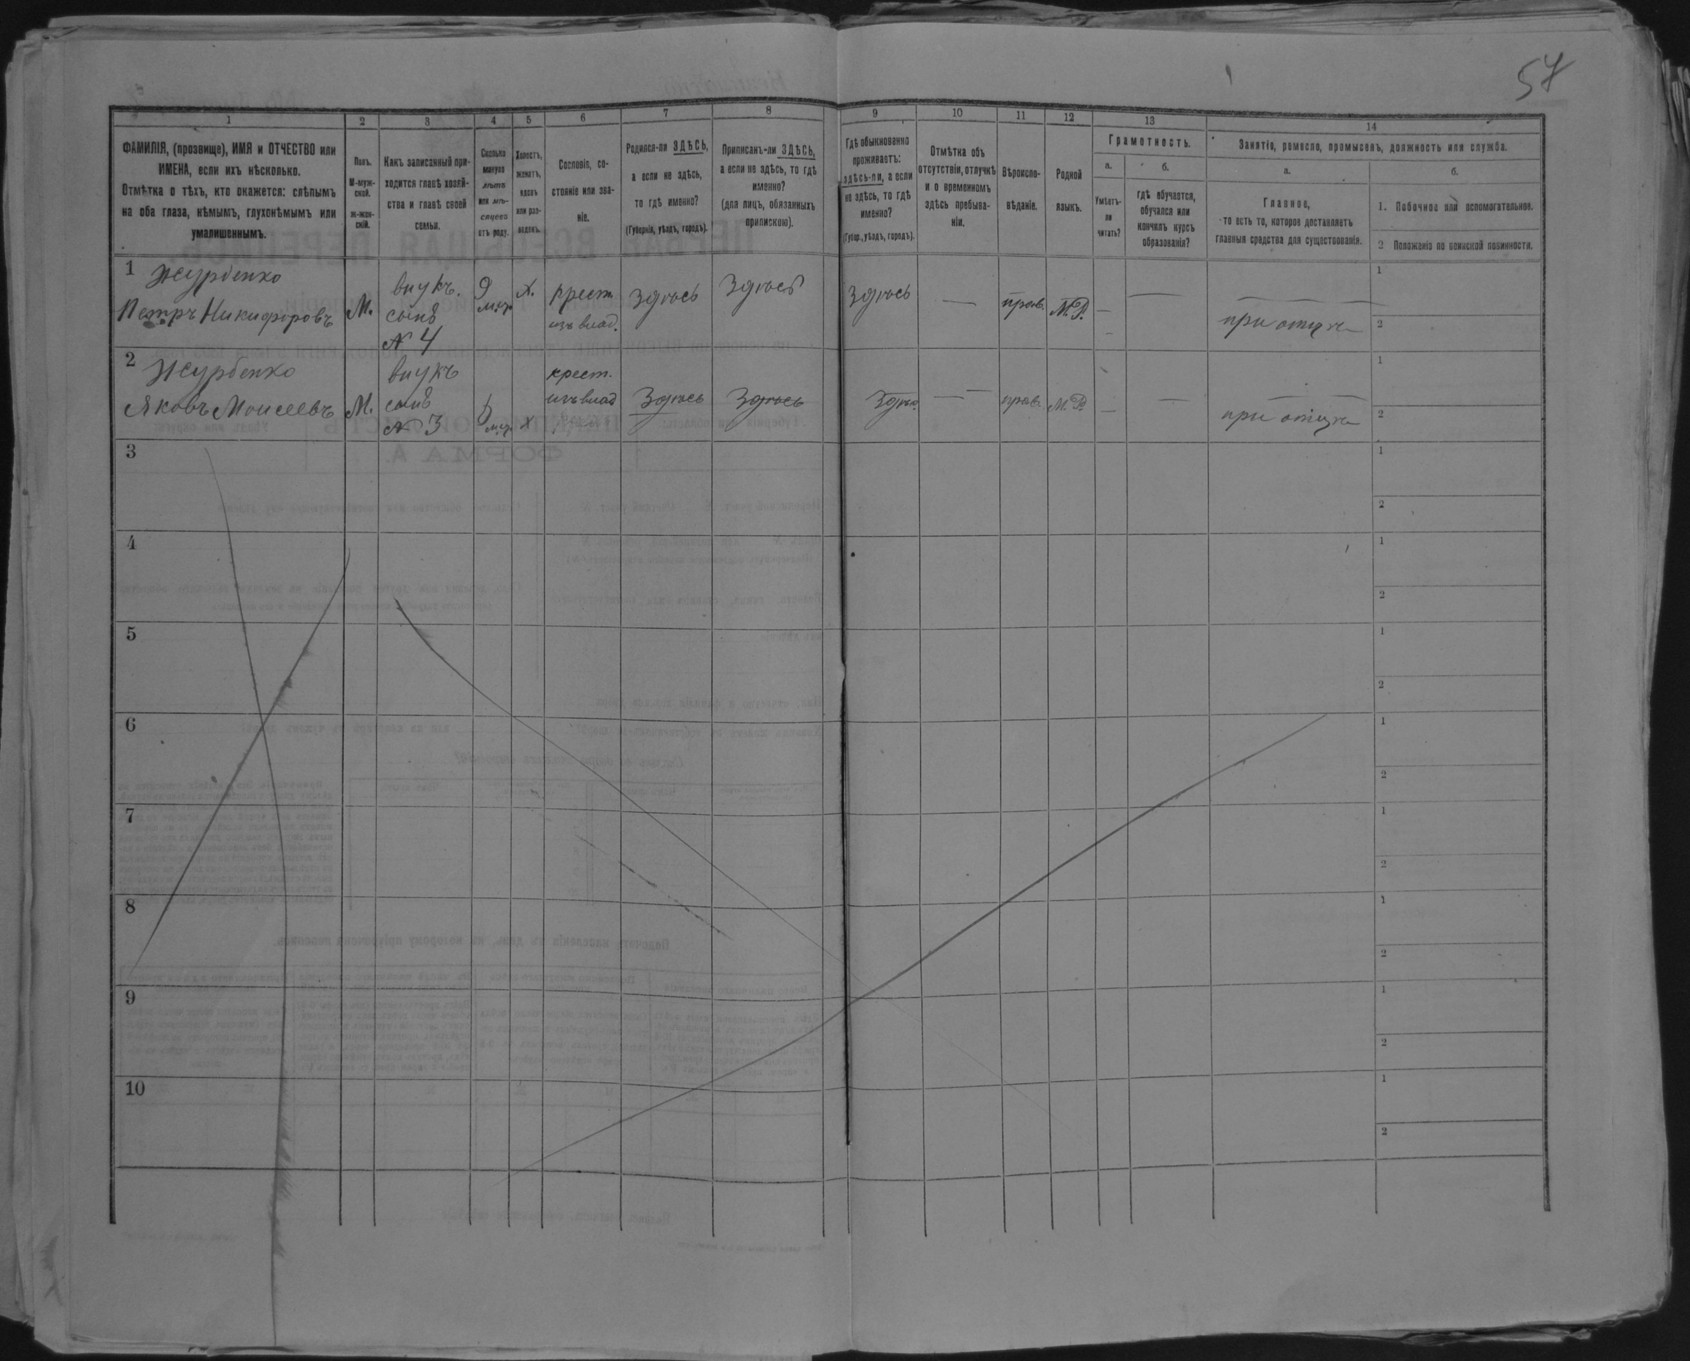 57
1 2 3 4 5 6 7 8 9 10 11 12 13 14
ФАМИЛІЯ, (прозвище), ИМЯ и ОТЧЕСТВО или
ИМЕНА, если ихъ нѣсколько.
Отмѣтка о тѣхъ, кто окажется: слѣпымъ
на оба глаза, нѣмымъ, глухонѣмымъ или
умалишеннымъ.
Полъ.
М-муж-
ской.
ж-жен-
скій.
Какъ записанный при-
ходится главѣ хозяй-
ства и главѣ своей
семьи.
Сколько
минуло
лѣтъ
или мѣ-
сяцевъ
отъ роду.
Холостъ,
женатъ,
вдовъ
или раз-
веденъ.
Сословіе, со-
стояніе или зва-
ніе.
Родился-ли ЗДѢСЬ,
а если не здѣсь,
то гдѣ именно?
(Губернія, уѣздъ, городъ).
Приписанъ-ли ЗДѢСЬ,
а если не здѣсь, то гдѣ
именно?
(для лицъ, обязанныхъ
припискою).
Гдѣ обыкновенно
проживаетъ:
здѣсь-ли, а если
не здѣсь, то гдѣ
именно?
(Губер., уѣздъ, городъ).
Отмѣтка объ
отсутствіи, отлучкѣ
и о временномъ
здѣсь пребыва-
ніи.
Вѣроиспо-
вѣданіе.
Родной
языкъ.
Грамотность.
а.
Умѣетъ-
ли
читать?
б.
гдѣ обучается,
обучался или
кончилъ курсъ
образованія?
Занятіе, ремесло, промыселъ, должность или служба.
а.
Главное,
то есть то, которое доставляетъ
главныя средства для существованія.
б.
1. Побочное или вспомогательное.
2 Положеніе по воинской повинности.
1 Журбенко
Петръ Никифоровъ
М.
внукъ.
сынъ
№ 4
9
мѣс.
х.
крест.
изъ влад.
Здѣсь
Здѣсь
Здѣсь
—
прав.
М.Р.
—
—
при отцѣ
1
2
2 Журбенко
Яковъ Моисеевъ
М.
внукъ
сынъ
№ 3
мѣс.
х
крест.
изъ влад
Здѣсь
Здѣсь
Здѣсь
—
прав.
М.Р.
—
—
при отцѣ
1
2
3
1
2
4
1
2
5
1
2
6
1
2
7
1
2
8
1
2
9
1
2
10
1
2